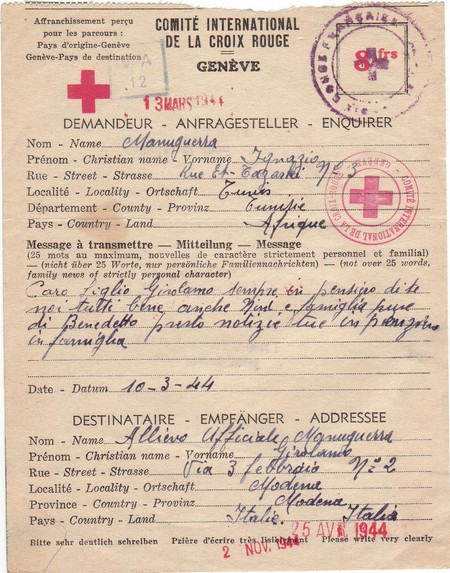 Affranchissement perçu
pour les parcours :
Pays d'origine-Genève
Genève-Pays de destination
COMITÉ INTERNATIONAL
DE LA CROIX ROUGE
GENÈVE
8 frs
12
13 MARS 1944
DEMANDEUR - ANFRAGESTELLER - ENQUIRER
Nom - Name Manuguerra
Prénom - Christian name - Vorname Ignazio
Rue - Street - Strasse Rue Et- N° 3
Localité - Locality - Ortschaft Tunis
Département - County - Provinz Tunisie
Pays - Country - Land Afrique
COMITÉ INTERNATIONAL DE LA CROIX-ROUGE
GENÈVE
Message à transmettre - Mitteilung - Message
(25 mots au maximum, nouvelles de caractère strictement personnel et familial)
— (nicht über 25 Worte, nur persönliche Familiennachrichten) — (not over 25 words,
family news of strictly personal character)
Caro figlio Girolamo sempre in pensiero di te
noi tutti bene anche e famiglia pure
di Benedetto presto notizie tue in
in famiglia
Date - Datum 10-3-44
DESTINATAIRE - EMPFÄNGER - ADDRESSEE
Nom - Name Allievo Ufficiale Manuguerra
Prénom - Christian name - Vorname Girolamo
Rue - Street - Strasse Via 3 febbraio N° 2
Localité - Locality - Ortschaft Modena
Province - County - Provinz Modena
Pays - Country - Land Italie Italia
25 AVR 1944
2 NOV. 1944
Bitte sehr deutlich schreiben Prière d'écrire très lisiblement Please write very clearly